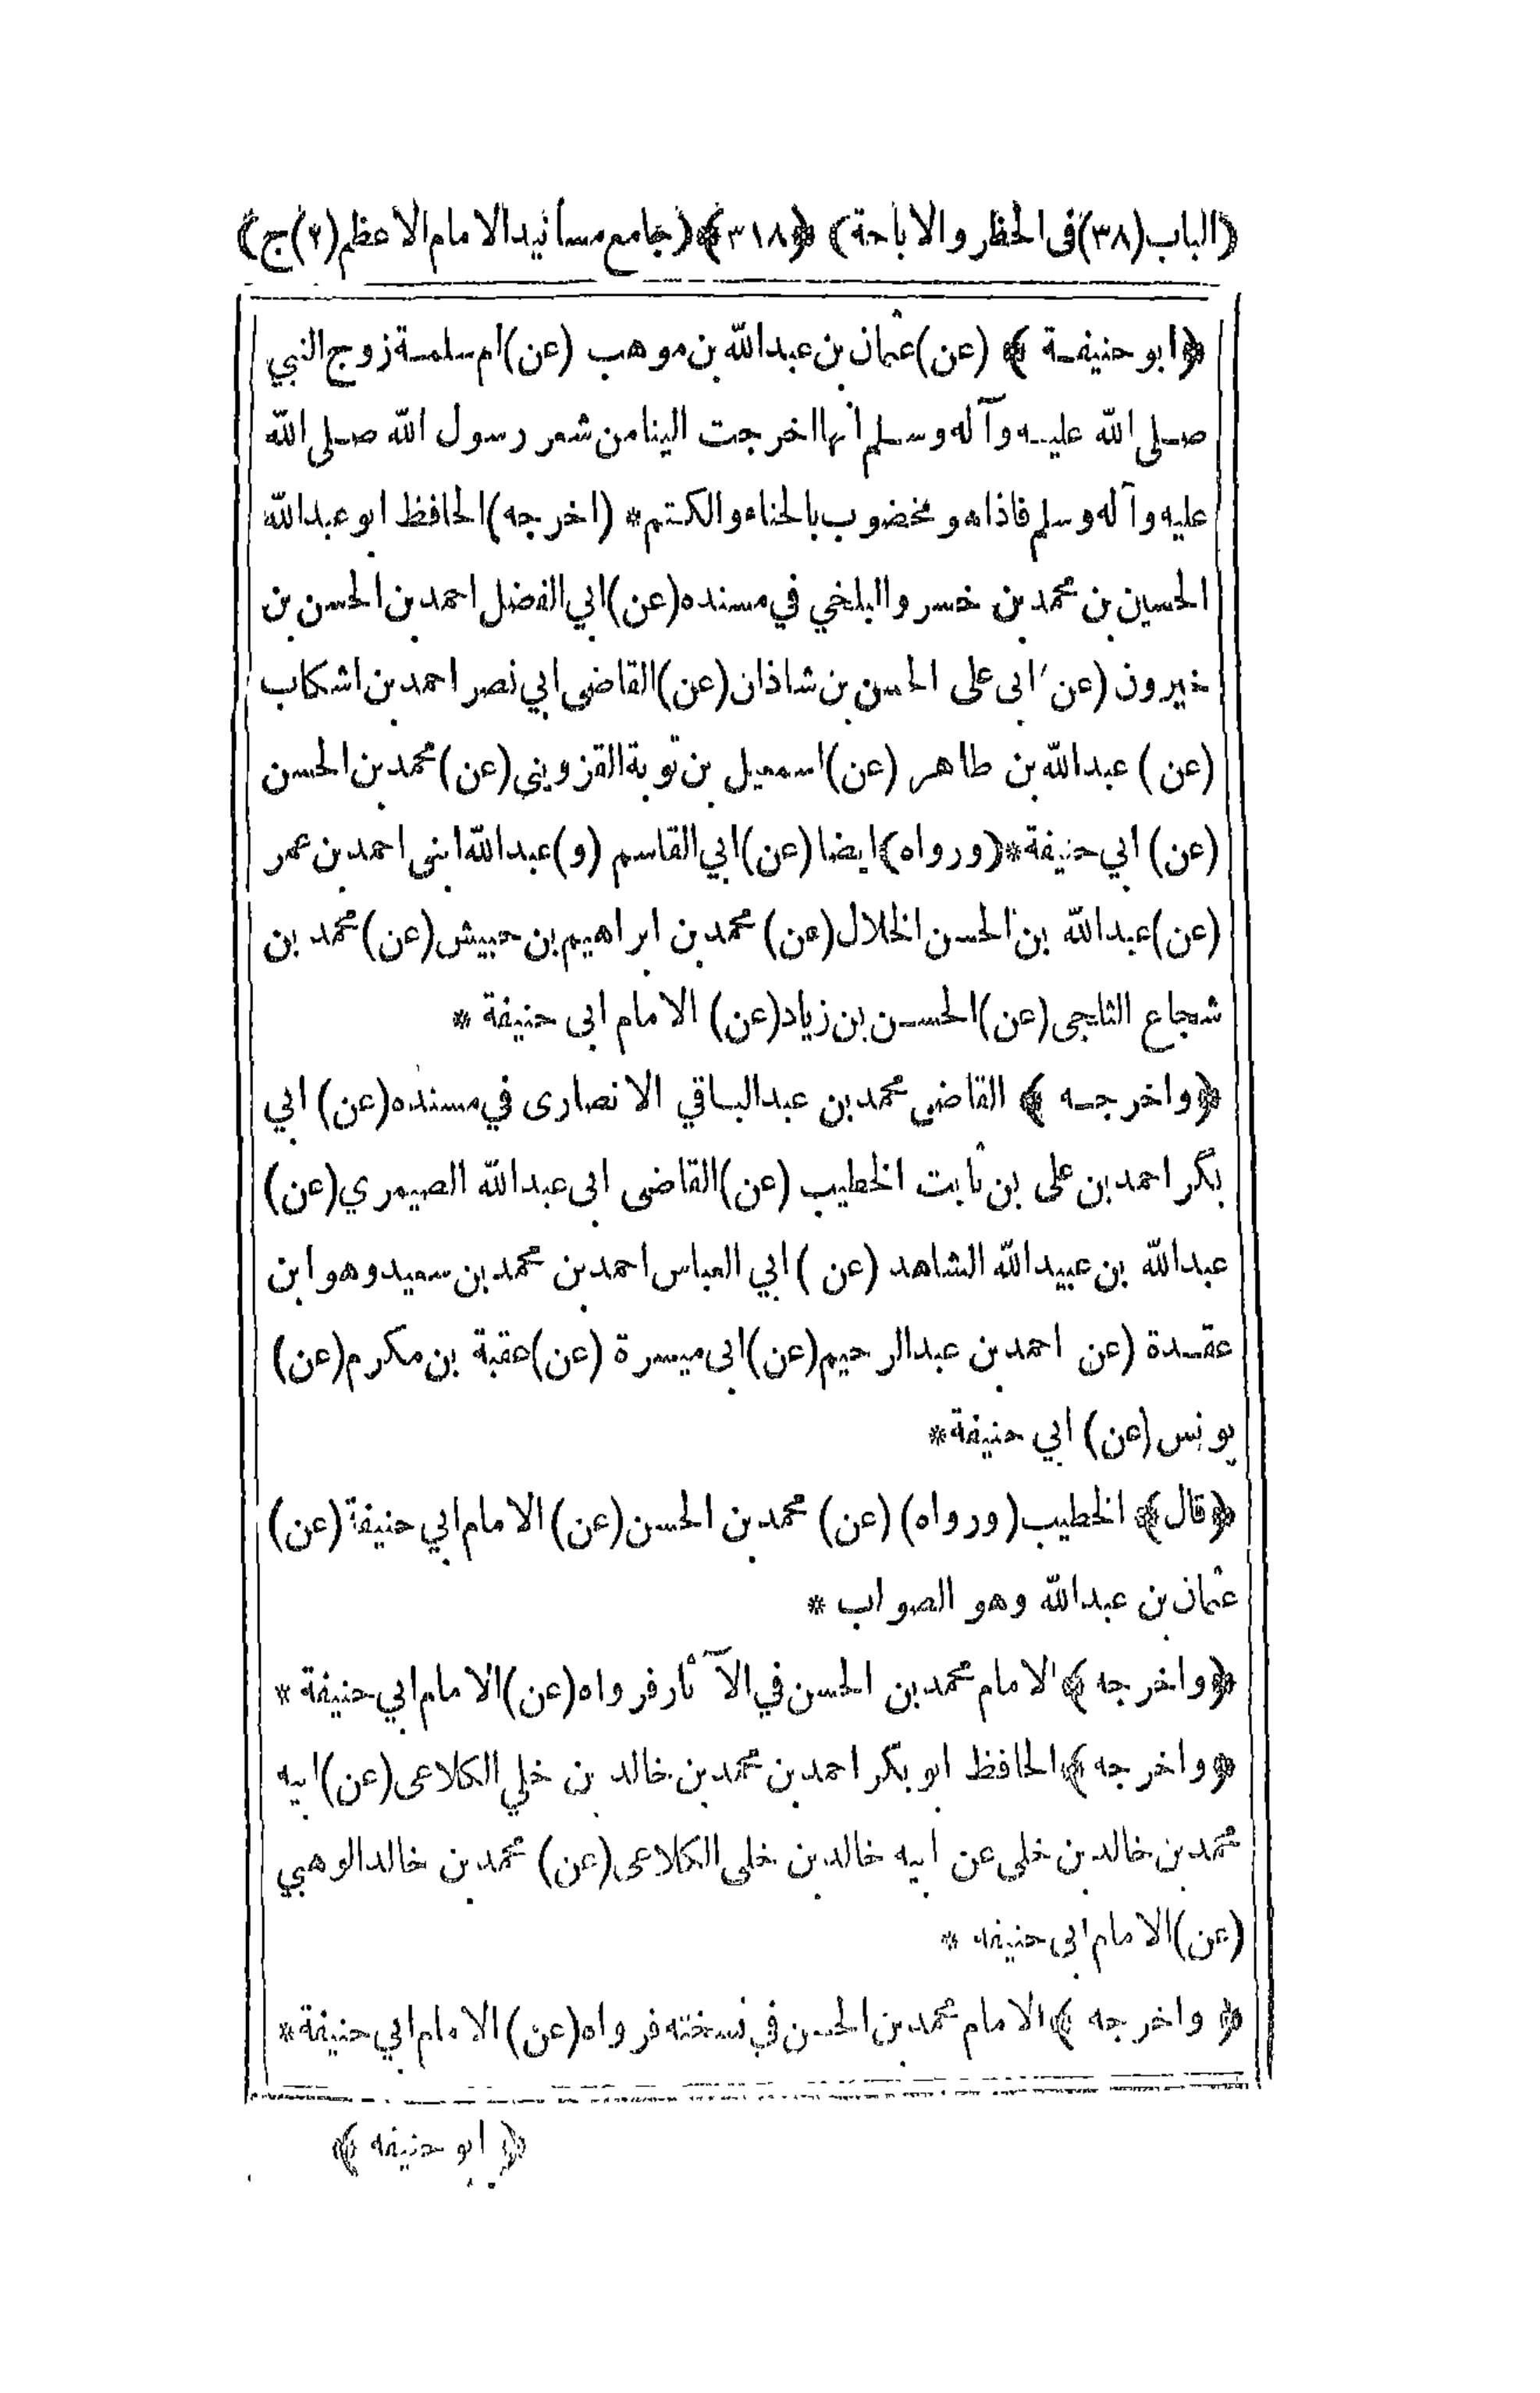 (الباب (٣٨) فى الحظر والاباحة) ﴿٣١٨﴾ (جامع مسانيد الامام الاعظم (٢) ج)
﴿ابو حنيفة﴾ (عن) عثمان بن عبدالله بن موهب (عن) ام سلمة زوج النبي
صلى الله عليه وآله وسلم انها اخرجت الينا من شعر رسول الله صلى الله
عليه وآله وسلم فاذا هو مخضوب بالحناء والكتم* (اخرجه) الحافظ ابو عبدالله
الحسين بن محمد بن خسرو البلخي في مسنده (عن) ابي الفضل احمد بن الحسن بن
خيرون (عن) ابى على الحسن بن شاذان (عن) القاضى ابي نصر احمد بن اشكاب
(عن) عبدالله بن طاهر (عن) اسمعيل بن توبة القزويني (عن) محمد بن الحسن
(عن) ابي حنيفة* (ورواه) ايضا (عن) ابي القاسم (و) عبدالله ابنى احمد بن عمر
(عن) عبدالله بن الحسن الخلال (عن) محمد بن ابراهيم بن حبيش (عن) محمد بن
شجاع الثلجى (عن) الحسن بن زياد (عن) الامام ابى حنيفة *
﴿واخرجه﴾ القاضى محمد بن عبدالباقي الانصارى في مسنده (عن) ابي
بكر احمد بن على بن ثابت الخطيب (عن) القاضى ابى عبدالله الصيمري (عن)
عبدالله بن عبيدالله الشاهد (عن) ابي العباس احمد بن محمد بن سعيد وهو ابن
عقدة (عن احمد بن عبدالرحيم (عن) ابى ميسرة (عن) عقبة بن مكرم (عن)
يونس (عن) ابي حنيفة*
﴿قال﴾ الخطيب (ورواه) (عن) محمد بن الحسن (عن) الامام ابي حنيفة (عن)
عثمان بن عبدالله وهو الصواب *
﴿واخرجه﴾ الامام محمد بن الحسن في الآثار فرواه (عن) الامام ابي حنيفة *
﴿واخرجه﴾ الحافظ ابو بكر احمد بن محمد بن خالد بن خلي الكلاعى (عن) ابيه
محمد بن خالد بن خلى عن ابيه خالد بن خلى الكلاعى (عن) محمد بن خالد الوهبي
(عن) الامام ابى حنيفه *
﴿واخرجه﴾ الامام محمد بن الحسن في نسخته فرواه (عن) الامام ابي حنيفة*
﴿ابو حنيفه﴾